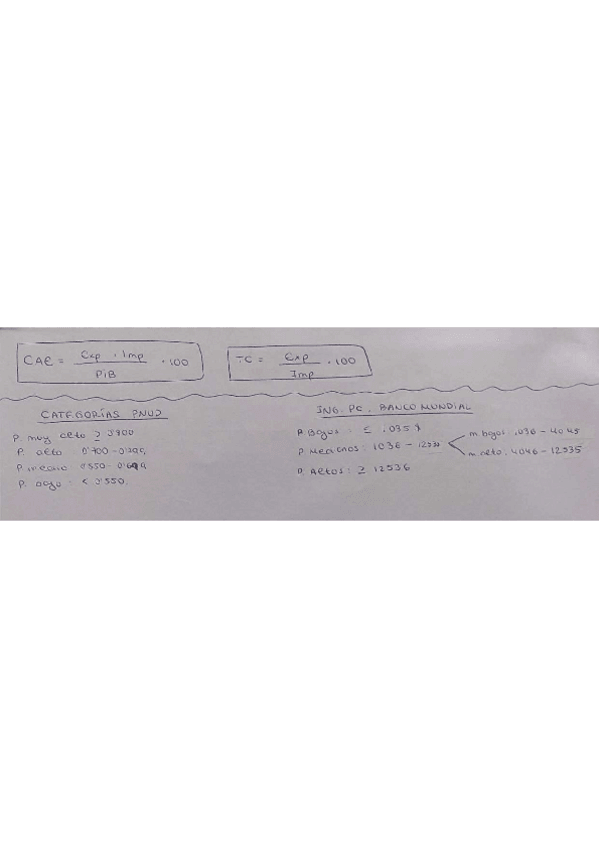 CAE = Exp + Imp / PIB · 100
TC = Exp / Imp · 100
CATEGORÍAS PNUD
P. muy alto ≥ 0'800
P. alto 0'700 - 0'799
P. medio 0'550 - 0'699
P. bajo : < 0'550
ING. PC. BANCO MUNDIAL
P. Bajos : ≤ 1035$
P. Medianos : 1036 - 12535
m. bajos: 1036 - 4045
m. : 4046 - 12535
P. Altos : ≥ 12536